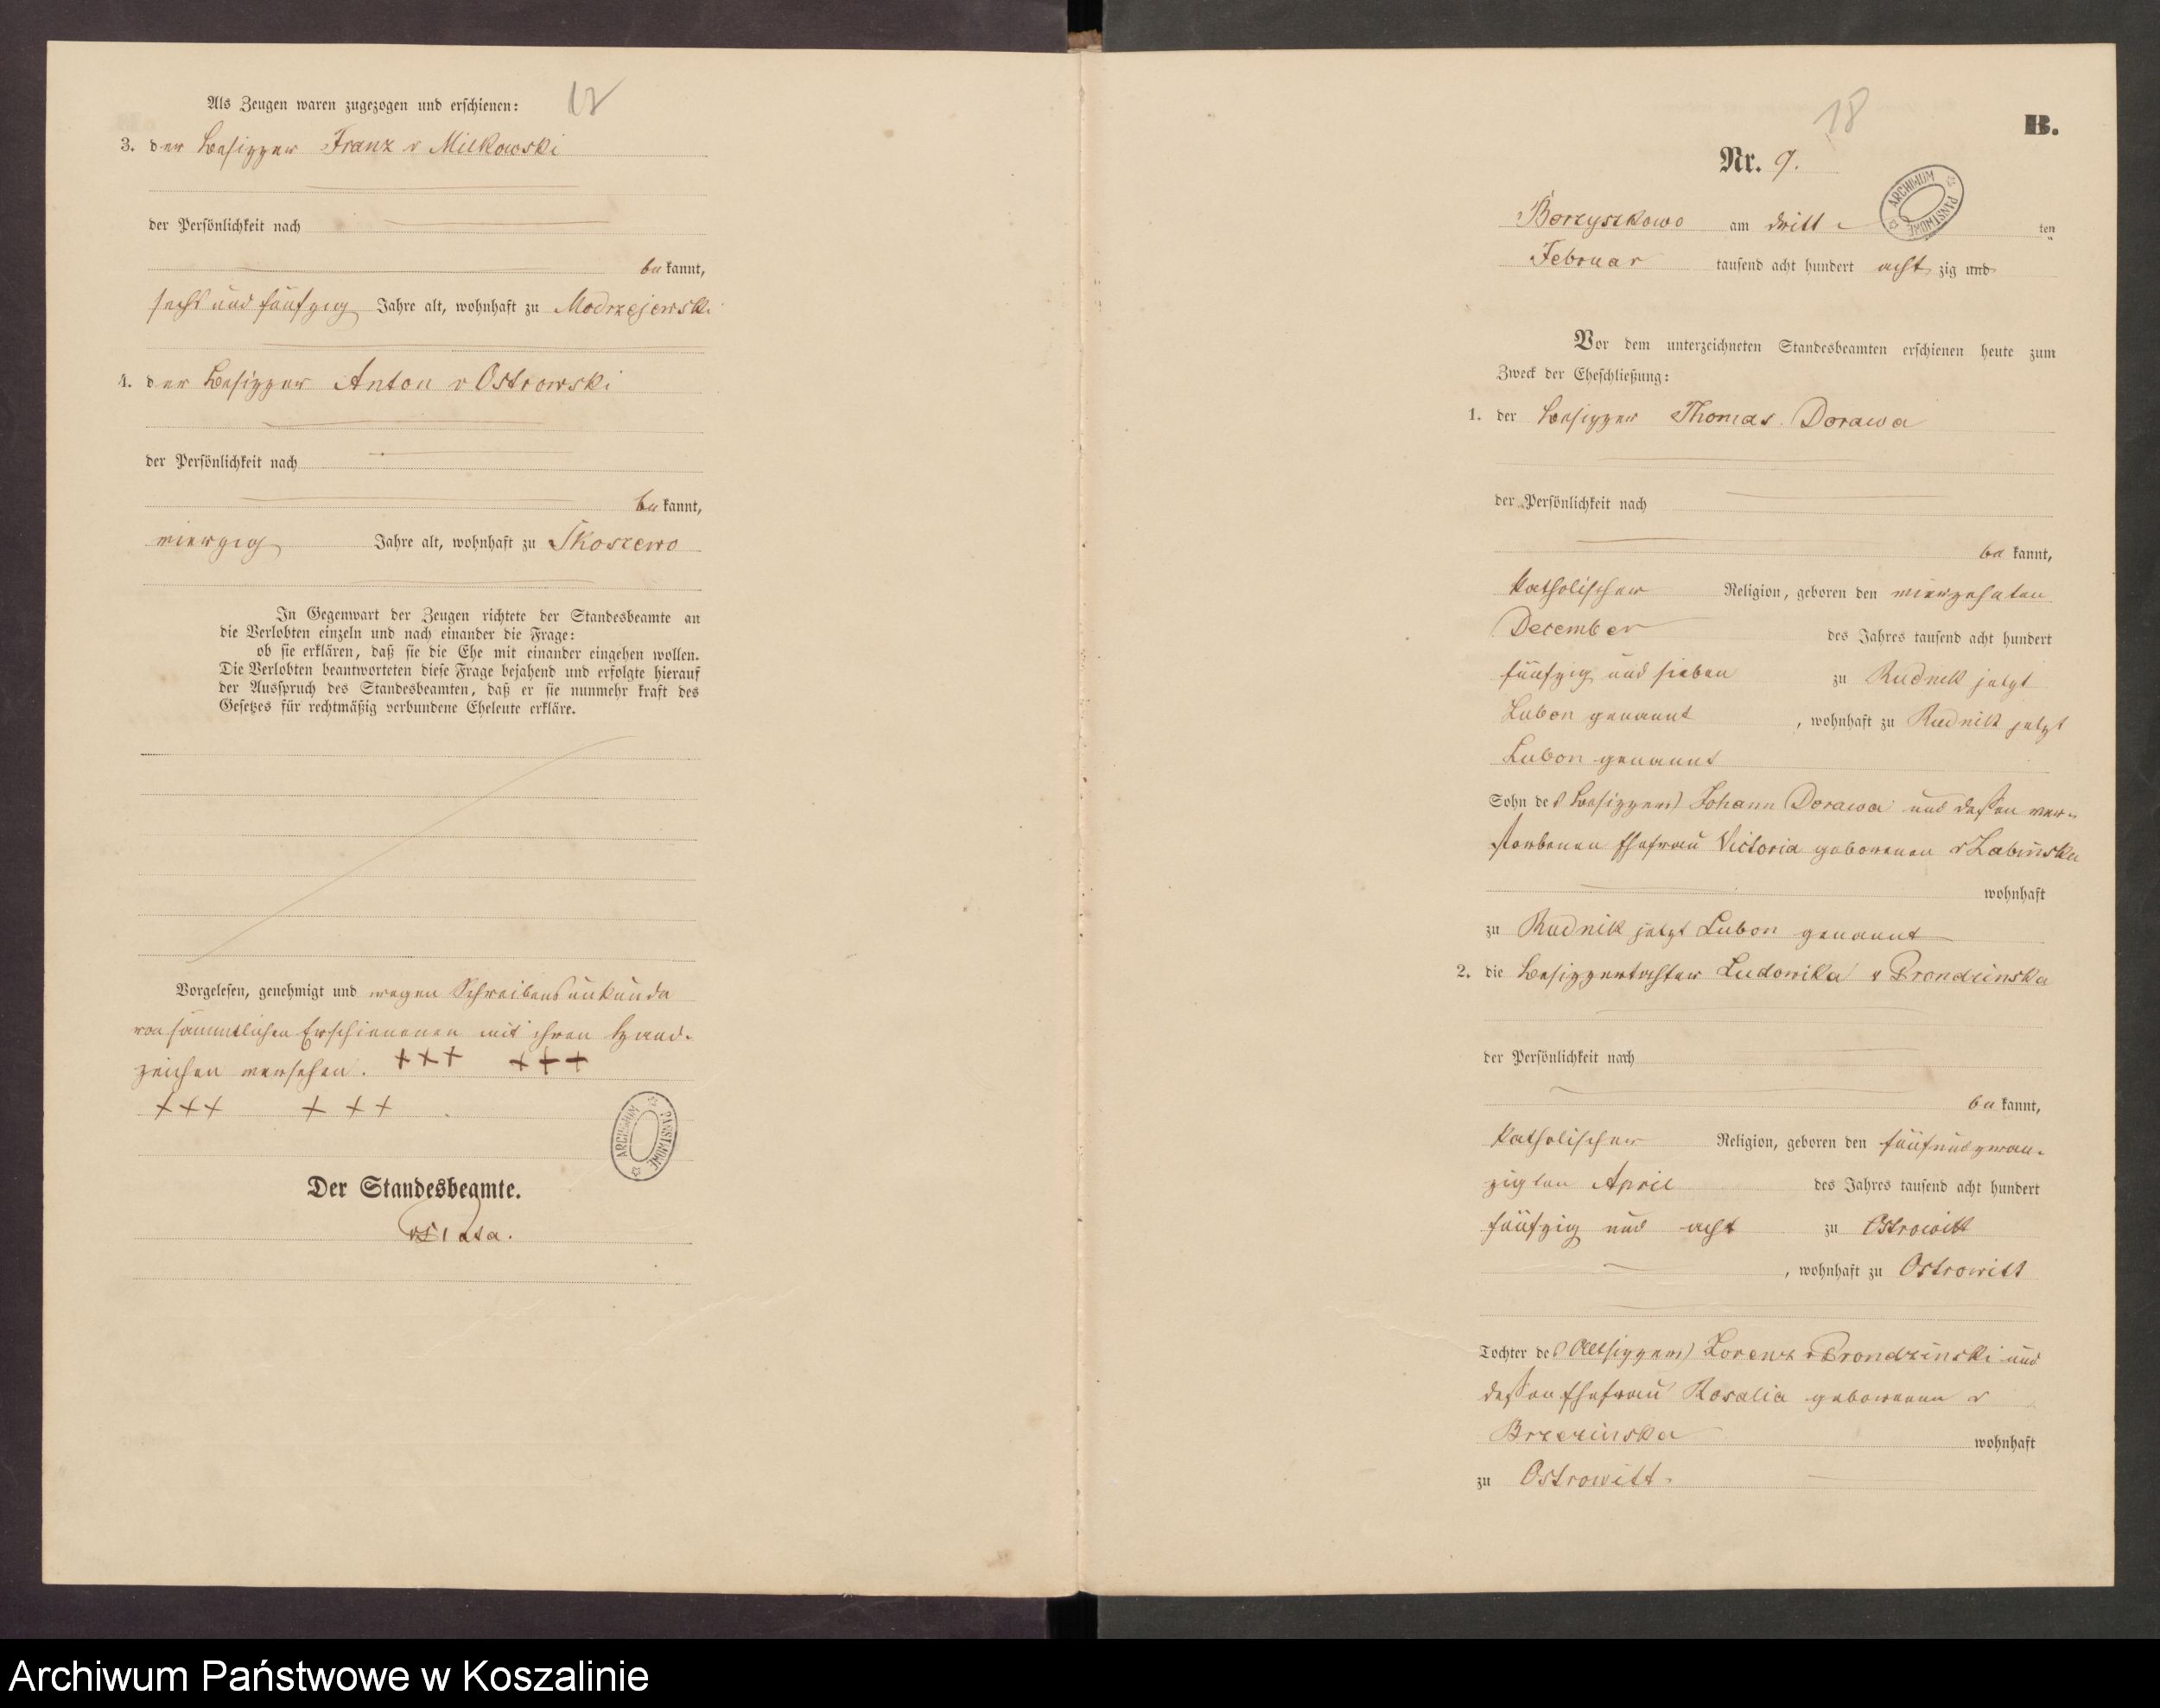 17
Als Zeugen waren zugezogen und erschienen:
3. der Besitzer Franz v Milkowski
der Persönlichkeit nach
bekannt,
sechs und fünfzig Jahre alt, wohnhaft zu Modrzejewski
4. der Besitzer Anton v Ostrowski
der Persönlichkeit nach
bekannt,
vierzig Jahre alt, wohnhaft zu Skoszewo
In Gegenwart der Zeugen richtete der Standesbeamte an
die Verlobten einzeln und nach einander die Frage:
ob sie erklären, daß sie die Ehe mit einander eingehen wollen.
Die Verlobten beantworteten diese Frage bejahend und erfolgte hierauf
der Ausspruch des Standesbeamten, daß er sie nunmehr kraft des
Gesetzes für rechtmäßig verbundene Eheleute erkläre.
Vorgelesen, genehmigt und wegen Schreibensunkunde
von sämmtlichen Erschienenen mit ihren Hand-
zeichen versehen. +++ +++
+++ +++
ARCHIWUM PAŃSTWOWE
Der Standesbeamte.
18
B.
Nr. 9.
ARCHIWUM PAŃSTWOWE
Borzyszkowo am dritt ten
Februar tausend acht hundert acht zig und
Vor dem unterzeichneten Standesbeamten erschienen heute zum
Zweck der Eheschließung:
1. der Besitzer Thomas Dorawa
der Persönlichkeit nach
bekannt,
katholischer Religion, geboren den vierzehnten
December des Jahres tausend acht hundert
fünfzig und sieben zu Rudnik jetzt
Lubon genannt, wohnhaft zu Rudnik jetzt
Lubon genannt
Sohn des Besitzers Johann Dorawa und dessen ver-
storbenen Ehefrau Victoria geborenen v Labinska
wohnhaft
zu Rudnik jetzt Lubon genannt
2. die Besitzertochter Ludowika v Prondzinska
der Persönlichkeit nach
bekannt,
katholischer Religion, geboren den fünfundzwan-
zigsten April des Jahres tausend acht hundert
fünfzig und acht zu Ostrowitt
, wohnhaft zu Ostrowitt
Tochter des Altsitzers Lorenz v Prondzinski und
dessen Ehefrau Rosalia geborenen v
Brzezinska wohnhaft
zu Ostrowitt.
Archiwum Państwowe w Koszalinie